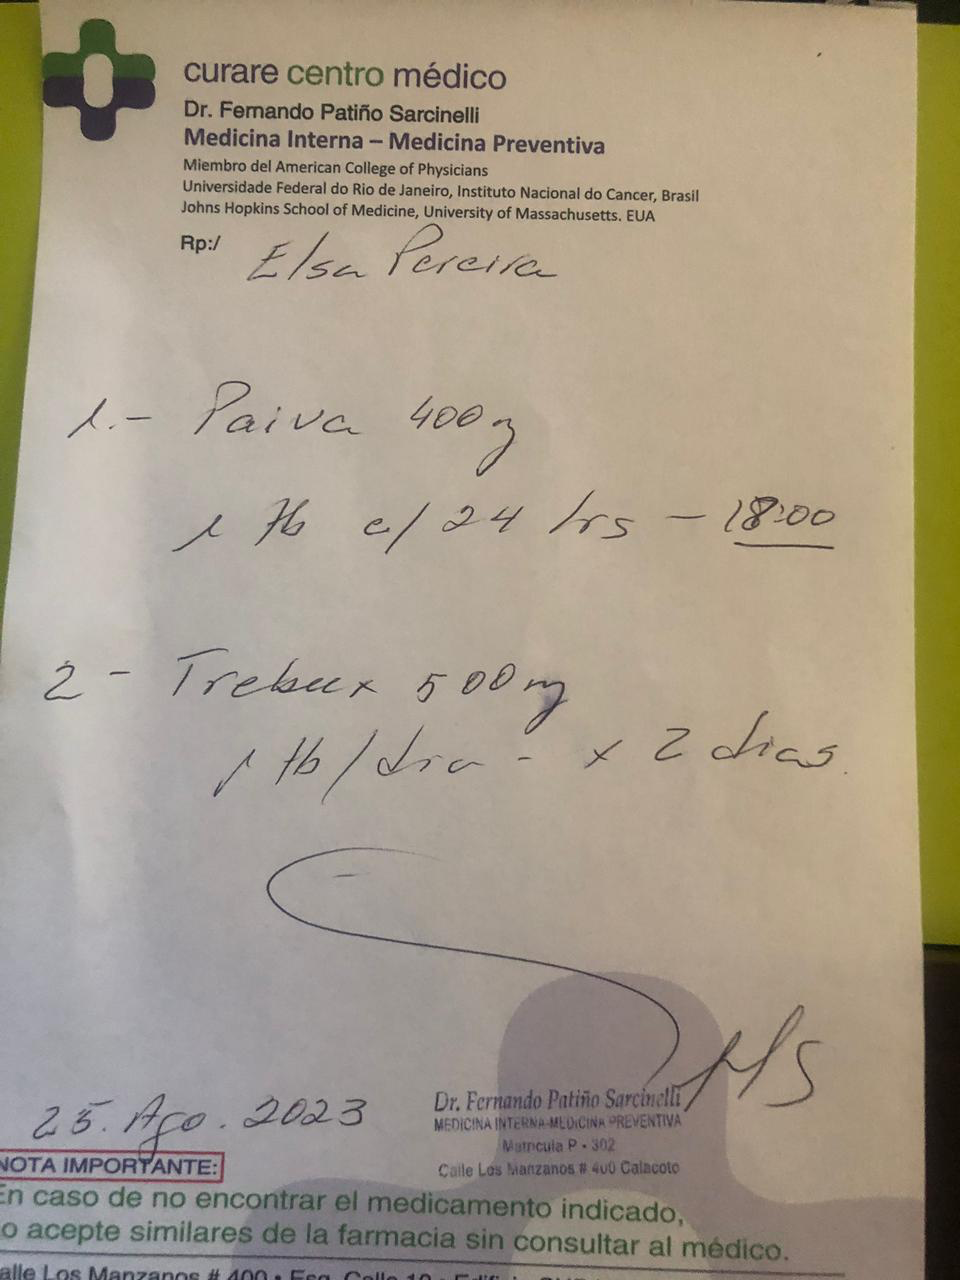 curare centro médico
Dr. Fernando Patiño Sarcinelli
Medicina Interna – Medicina Preventiva
Miembro del American College of Physicians
Universidade Federal do Rio de Janeiro, Instituto Nacional do Cancer, Brasil
Johns Hopkins School of Medicine, University of Massachusetts. EUA
Rp:/ Elsa Pereira
1.- Paiva 400
1 tb c/ 24 hrs - 18:00
2 - Trebux 500mg
1 tb/dia - x 2 dias.
25. Ago. 2023
Dr. Fernando Patiño Sarcinelli
MEDICINA INTERNA-MEDICINA PREVENTIVA
Matricula P - 302
Calle Los Manzanos # 400 Calacoto
NOTA IMPORTANTE:
En caso de no encontrar el medicamento indicado,
o acepte similares de la farmacia sin consultar al médico.
alle Los Manzanos # 400 • Esq. Calle